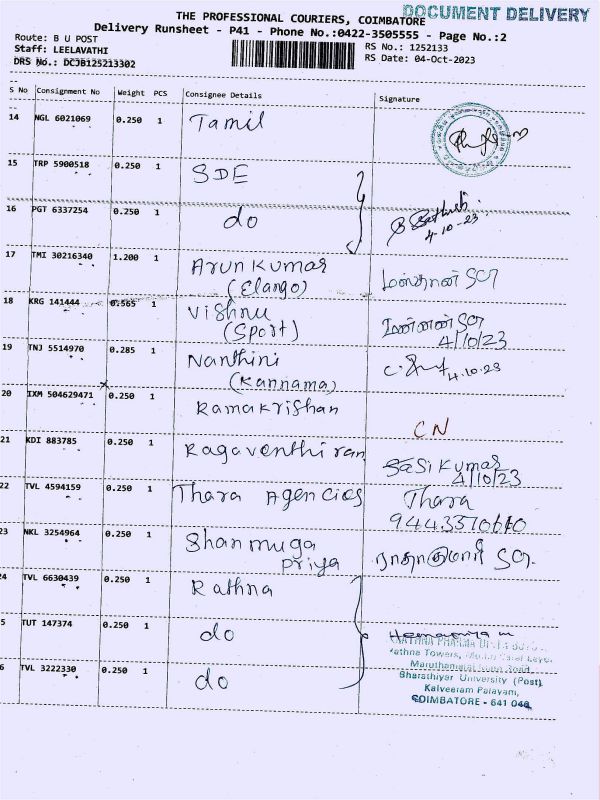 DOCUMENT DELIVERY
THE PROFESSIONAL COURIERS, COIMBATORE
Delivery Runsheet - P41 - Phone No.:0422-3505555 - Page No.:2
Route: B U POST
Staff: LEELAVATHI
DRS No.: DCJB125213302
RS No.: 1252133
RS Date: 04-Oct-2023
S No Consignment No Weight PCS Consignee Details Signature
14 NGL 6021069 0.250 1 Tamil
15 TRP 5900518 0.250 1 SDE
16 PGT 6337254 0.250 1 do
4-10-23
17 TMI 30216340 1.200 1 Arun Kumar
(Elango)
18 KRG 141444 0.565 1 Vishnu
(Sport)
4/10/23
19 TNJ 5514970 0.285 1 Nanthini
(Kannama)
4.10.23
20 IXM 504629471 0.250 1 Ramakrishan CN
21 KDI 883785 0.250 1 Ragaventhiran Sasi Kumar
4/10/23
22 TVL 4594159 0.250 1 Thara Agencies Thara
23 NKL 3254964 0.250 1 Shanmuga
Priya
4 TVL 6630439 0.250 1 Rathna
5 TUT 147374 0.250 1 do
6 TVL 3222330 0.250 1 do
Bharathiyar University (Post)
Kalveeram Palayam,
COIMBATORE - 641 046